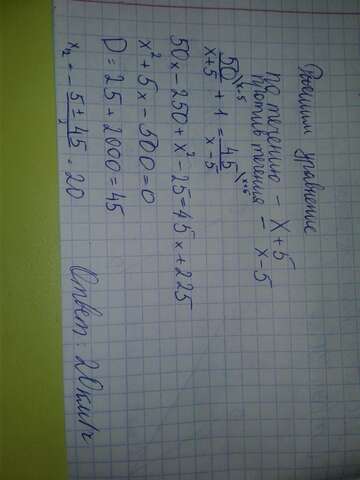 Решим уравнение
по течению – x+5
против течения – x-5
50/x+5 \x-5 + 1 = 45/x-5 \x+5
50x-250+x²-25=45x+225
x²+5x-500=0
D=25+2000=45
x₂=-5±45/2=20
Ответ: 20км/ч